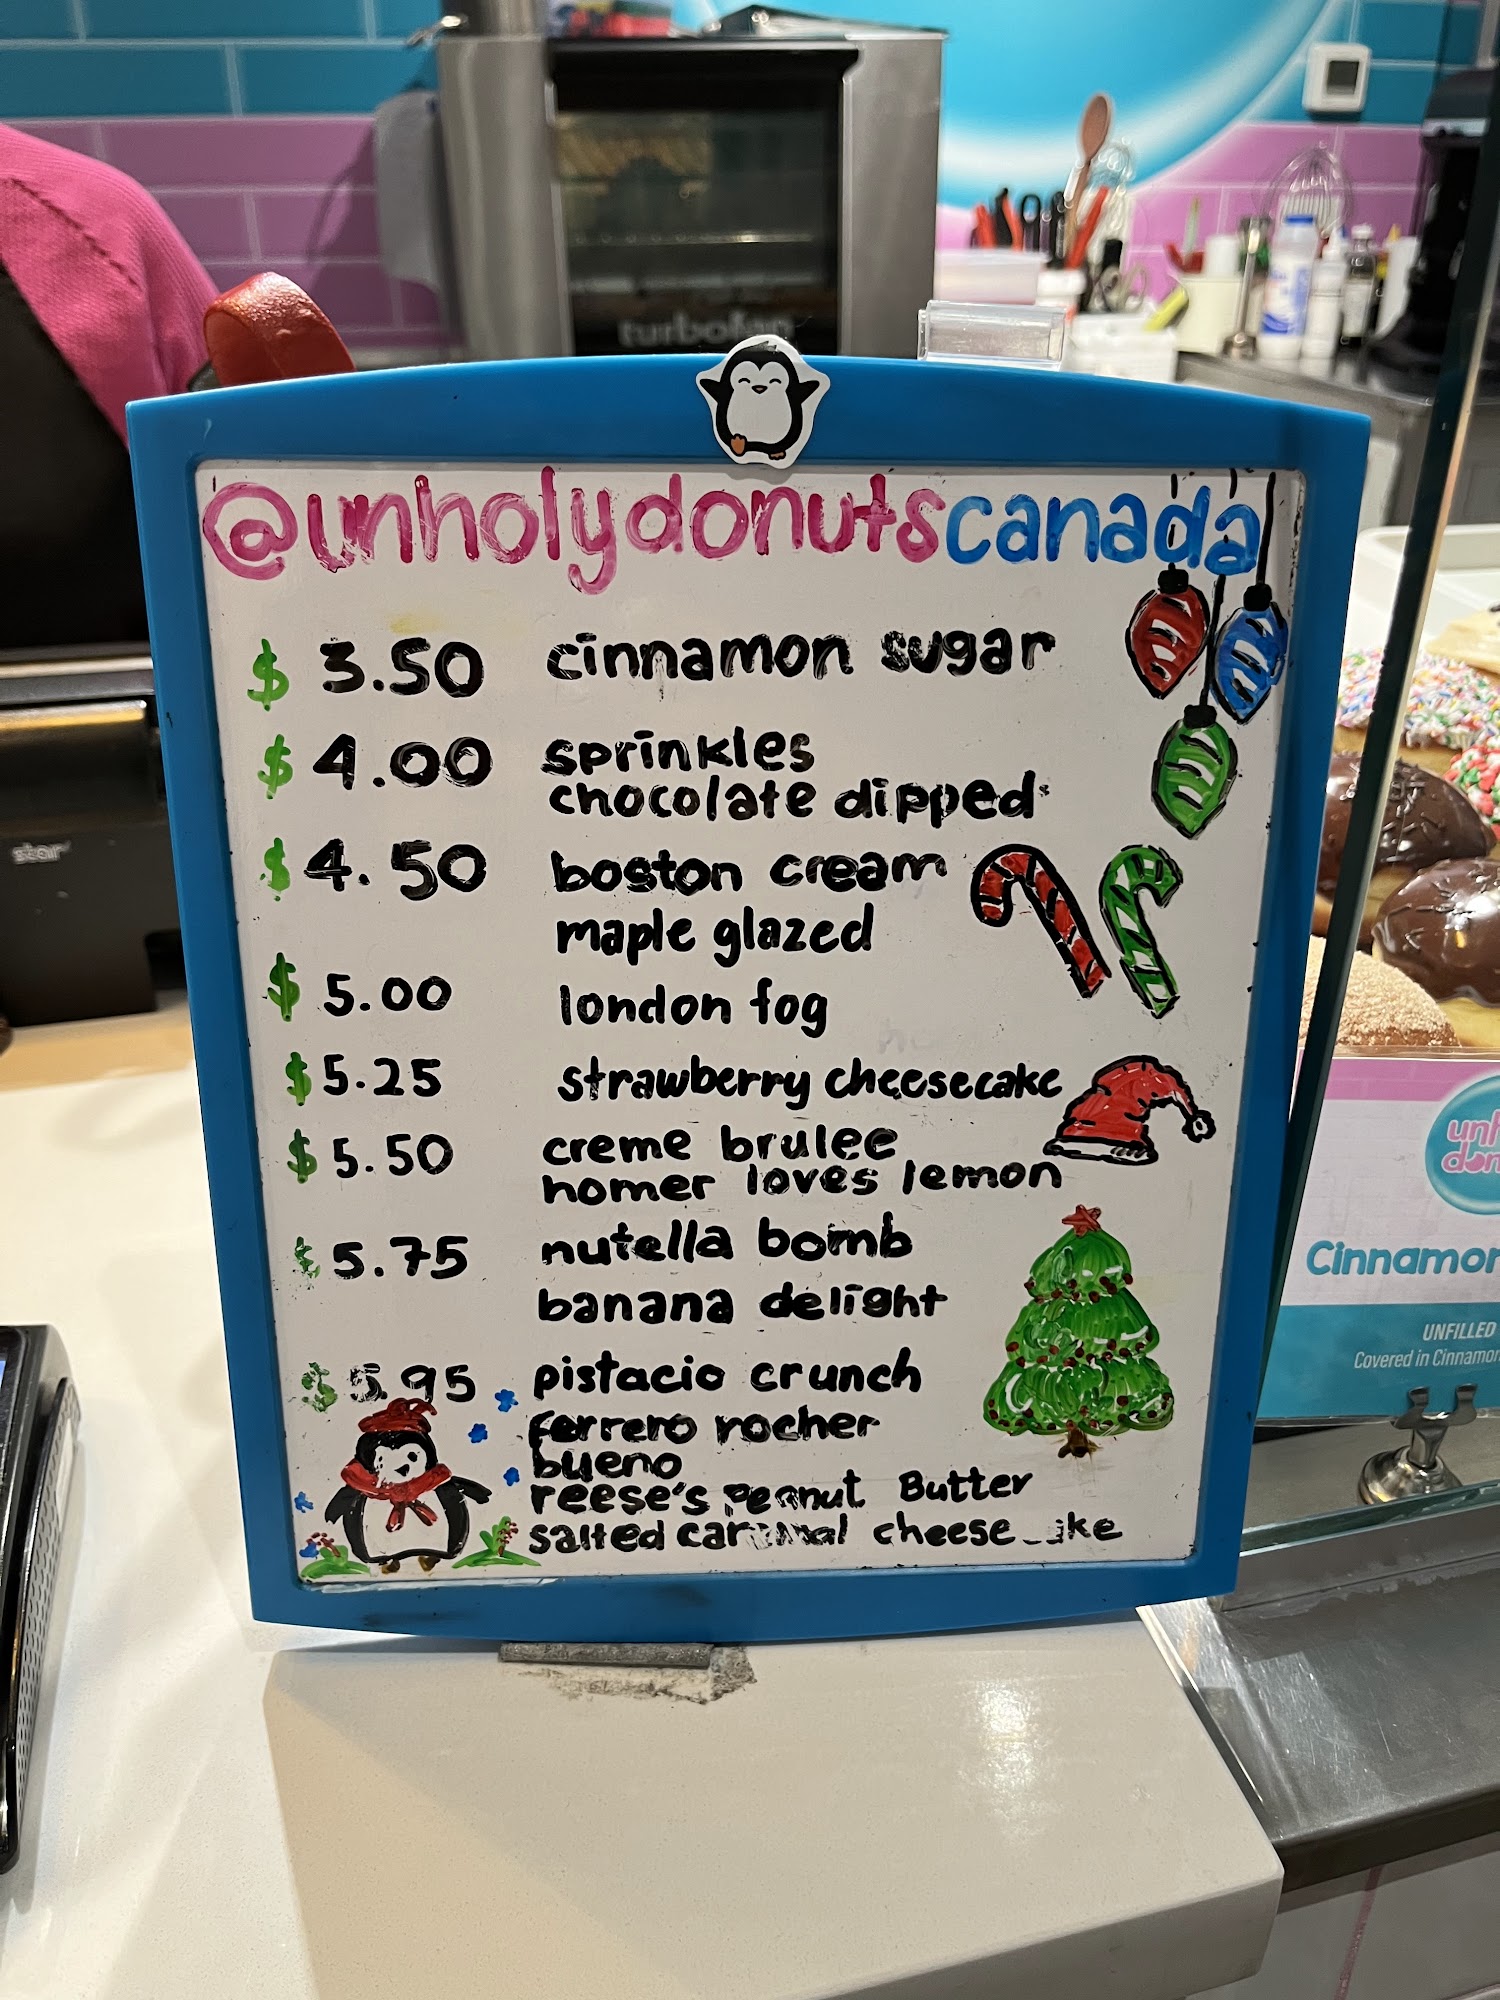 turbofan
@unholydonutscanada
$ 3.50 cinnamon sugar
$ 4.00 sprinkles
chocolate dipped
$ 4.50 boston cream
maple glazed
$ 5.00 london fog
$ 5.25 strawberry cheesecake
$ 5.50 creme brulee
homer loves lemon
$ 5.75 nutella bomb
banana delight
$ 5.95 pistacio crunch
ferrero rocher
bueno
reese's Peanut Butter
salted cheese
star
Cinnamon
UNFILLED
Covered in Cinnamon